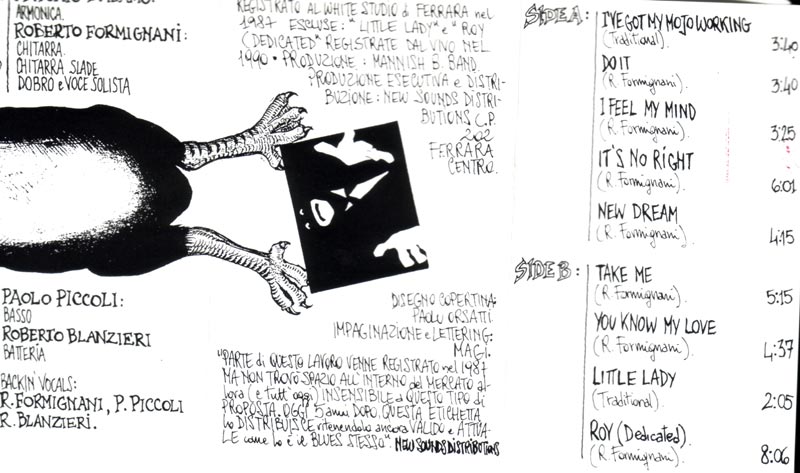 ARMONICA.
ROBERTO FORMIGNANI:
CHITARRA.
CHITARRA SLADE
DOBRO e VOCE SOLISTA
PAOLO PICCOLI:
BASSO
ROBERTO BLANZIERI
BATTERIA
BACKIN' VOCALS:
R. FORMIGNANI, P. PICCOLI
R. BLANZIERI.
REGISTRATO AL WHITE STUDIO di FERRARA nel
1987 ESCLUSE: "LITTLE LADY" e "ROY
(DEDICATED" REGISTRATE DAL VIVO NEL
1990 • PRODUZIONE: MANNISH B. BAND.
PRODUZIONE ESECUTIVA e DISTRI-
BUZIONE: NEW SOUNDS DISTRI-
BUTIONS C.P.
202
FERRARA
CENTRO.
DISEGNO COPERTINA:
PAOLO ORSATTI.
IMPAGINAZIONE e LETTERING:
MAGI.
"PARTE di QUESTO LAVORO VENNE REGISTRATO nel 1987
MA NON TROVÒ SPAZIO ALL'INTERNO del MERCATO al-
lora (e tutt'oggi) INSENSIBILE a QUESTO TIPO di
PROPOSTA. OGGI 5 anni DOPO, QUESTA ETICHETTA
lo DISTRIBUISCE ritenendolo ancora VALIDO e ATTUA-
LE come lo è il BLUES STESSO". NEW SOUNDS DISTRIBUTIONS
SIDE A: I'VE GOT MY MOJO WORKING
(Traditional). 3:40
DO IT
(R. Formignani). 3:40
I FEEL MY MIND
(R. Formignani). 3:25
IT'S NO RIGHT
(R. Formignani). 6:01
NEW DREAM
(R. Formignani). 4:15
SIDE B: TAKE ME
(R. Formignani). 5:15
YOU KNOW MY LOVE
(R. Formignani). 4:37
LITTLE LADY
(Traditional). 2:05
ROY (Dedicated).
(R. Formignani). 8:06